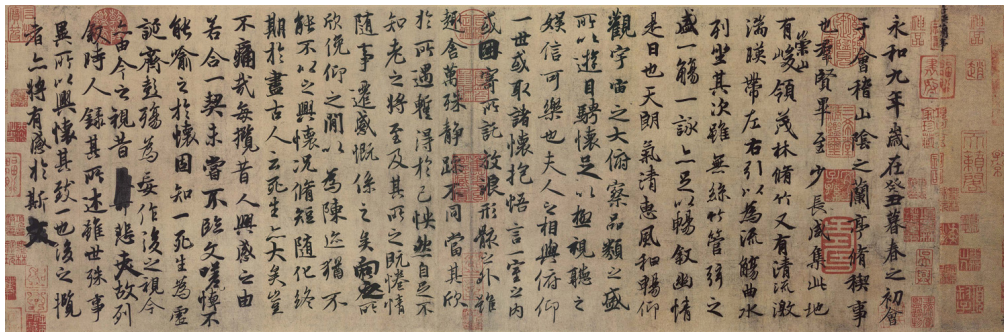 永和九年歲在癸丑暮春之初會
于會稽山陰之蘭亭脩稧事
也群賢畢至少長咸集此地
崇山
有峻領茂林脩竹又有清流激
湍暎帶左右引以為流觴曲水
列坐其次雖無絲竹管弦之
盛一觴一詠亦足以暢敘幽情
是日也天朗氣清惠風和暢仰
觀宇宙之大俯察品類之盛
所以遊目騁懷足以極視聽之
娛信可樂也夫人之相與俯仰
一世或取諸懷抱悟言一室之內
或因寄所託放浪形骸之外雖
趣舍萬殊靜躁不同當其欣
於所遇暫得於己怏然自足不
知老之將至及其所之既惓情
隨事遷感慨係之矣向之所
欣俛仰之閒以為陳迹猶不
能不以之興懷況脩短隨化終
期於盡古人云死生亦大矣豈
不痛哉每攬昔人興感之由
若合一契未嘗不臨文嗟悼不
能喻之於懷固知一死生為虛
誕齊彭殤為妄作後之視今
亦由今之視昔悲夫故列
敘時人錄其所述雖世殊事
異所以興懷其致一也後之攬
者亦將有感於斯文